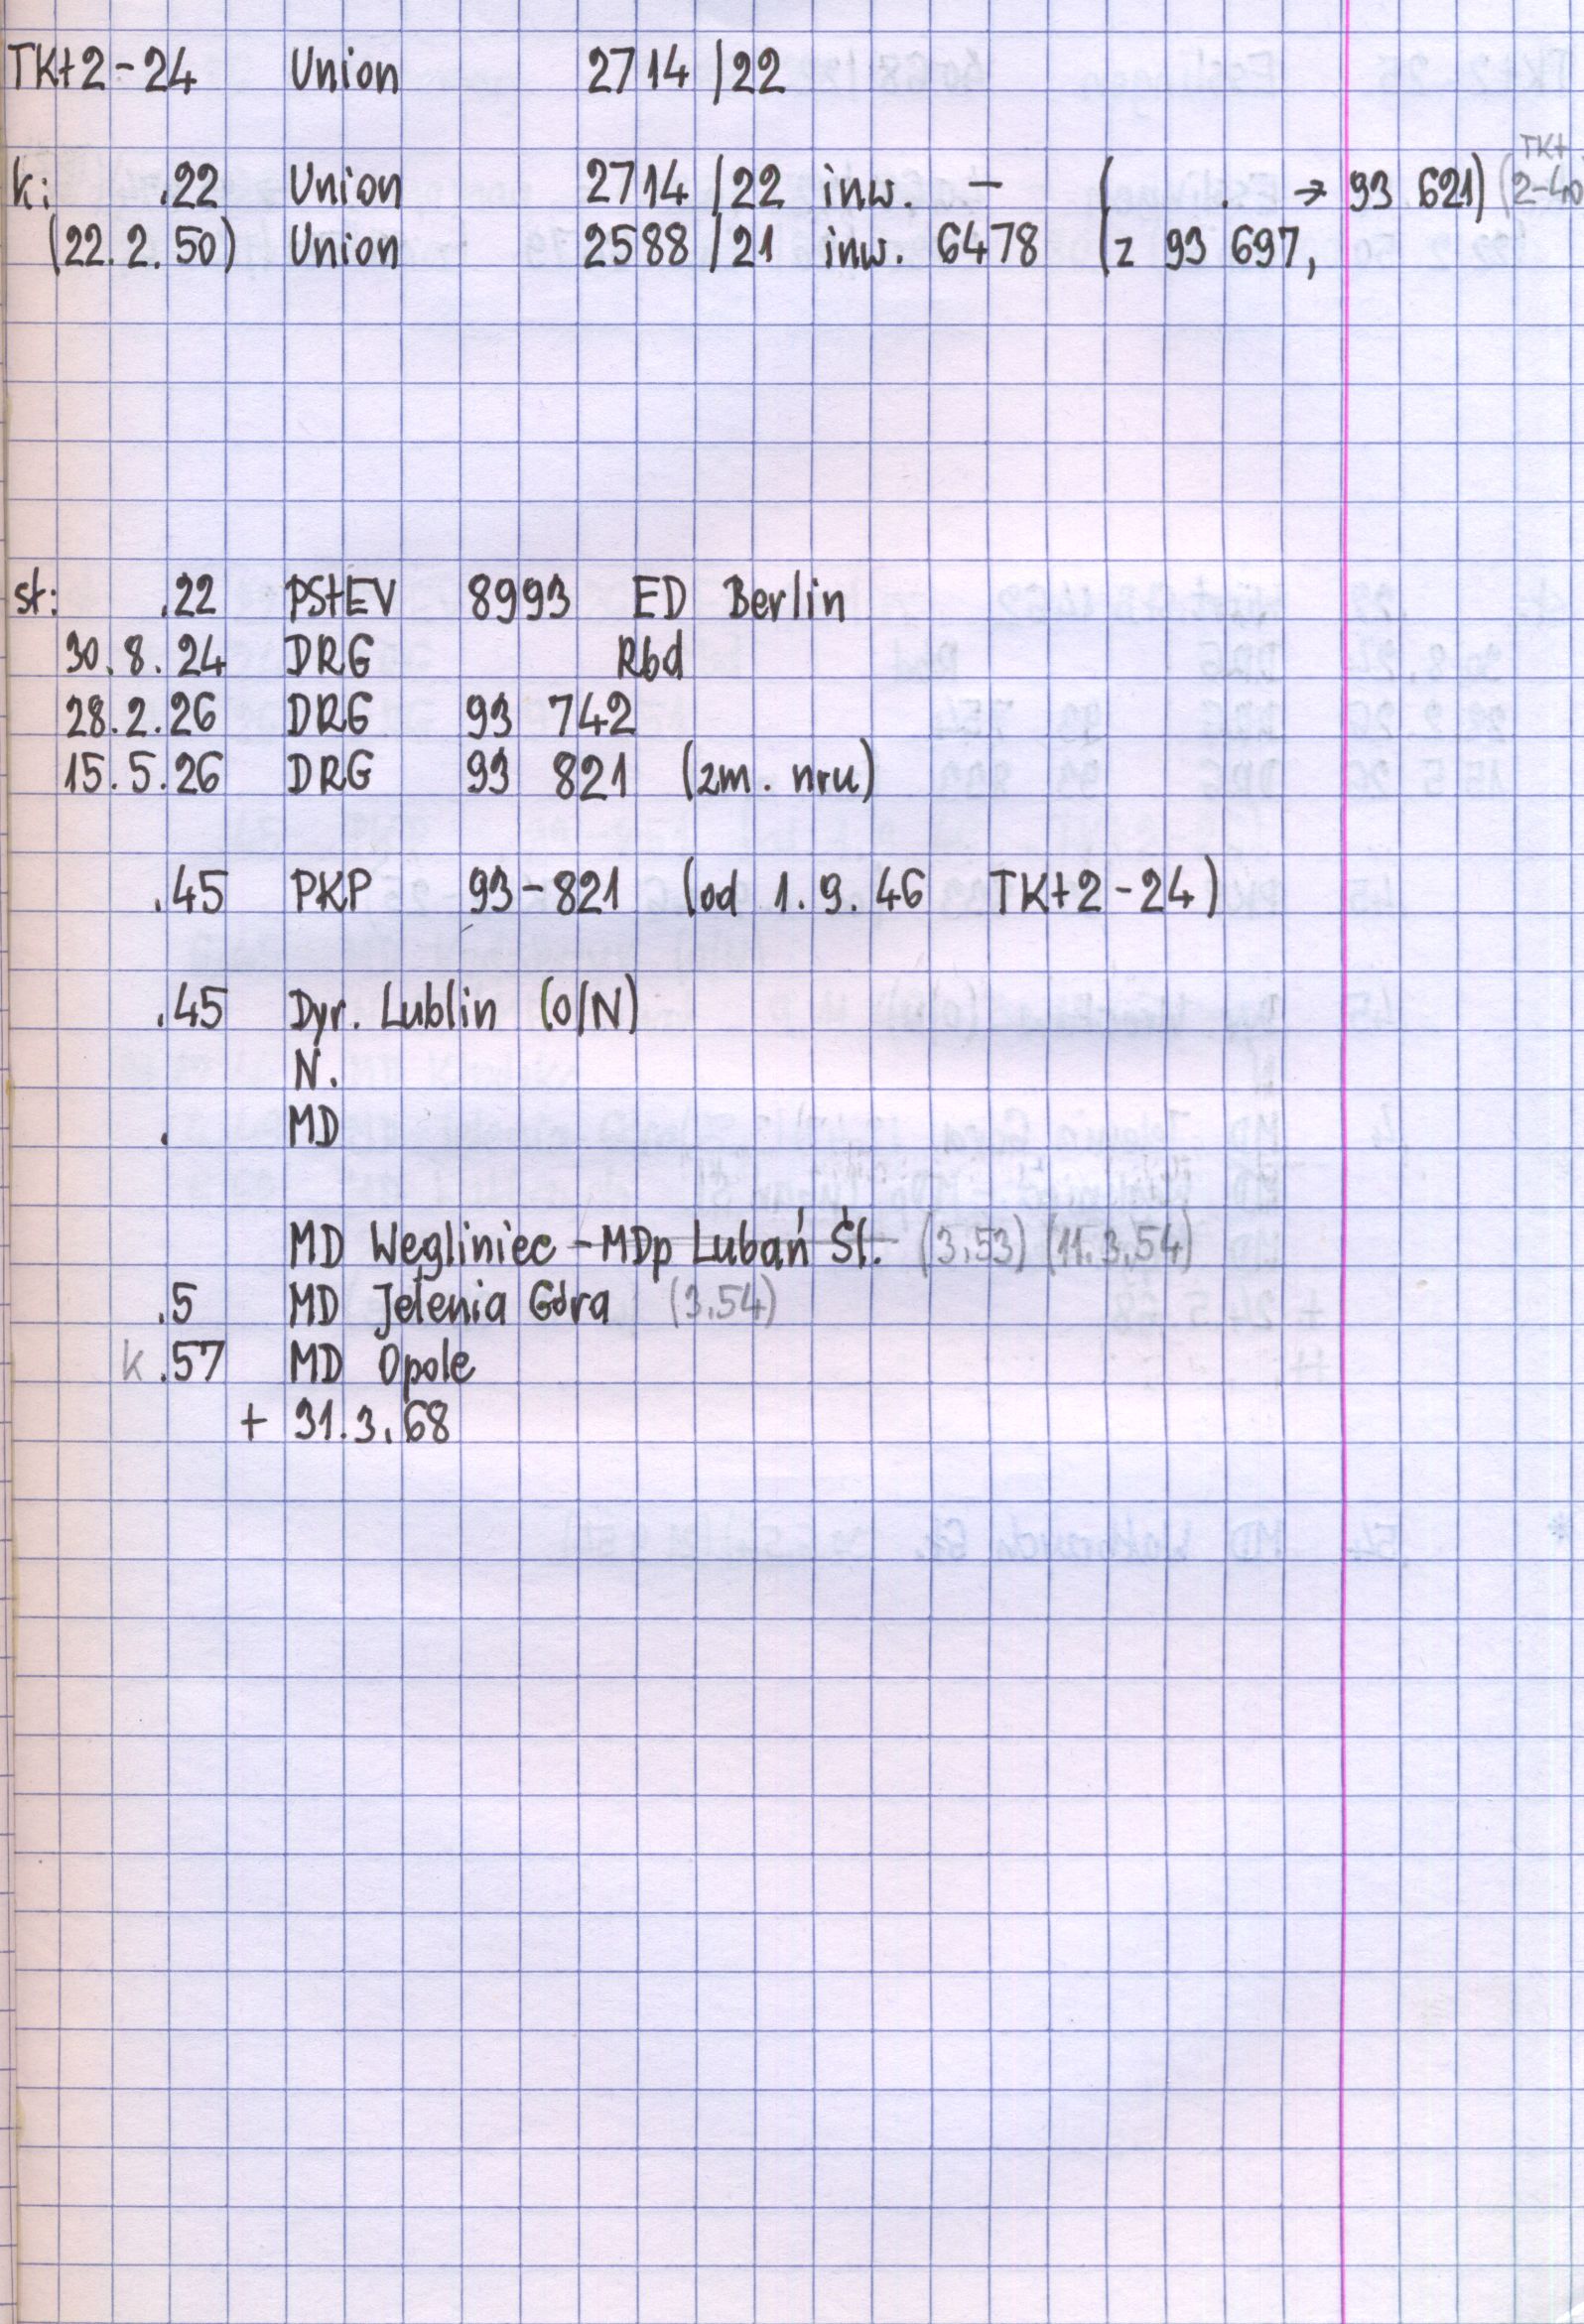 TKt2-24 Union 2714/22
k: .22 Union 2714/22 inw. – ( . → 93 621) (TKt 2-40
(22.2.50) Union 2588/21 inw. 6478 (z 93 697,
st: .22 PStEV 8993 ED Berlin
30.8.24 DRG Rbd
28.2.26 DRG 93 742
15.5.26 DRG 93 821 (zm. nru)
.45 PKP 93-821 (od 1.9.46 TKt2-24)
.45 Dyr. Lublin (O/N)
N.
. MD
MD Węgliniec - MDp Lubań Śl. (3.53) (11.3.54)
.5 MD Jelenia Góra (3.54)
k .57 MD Opole
+ 31.3.68